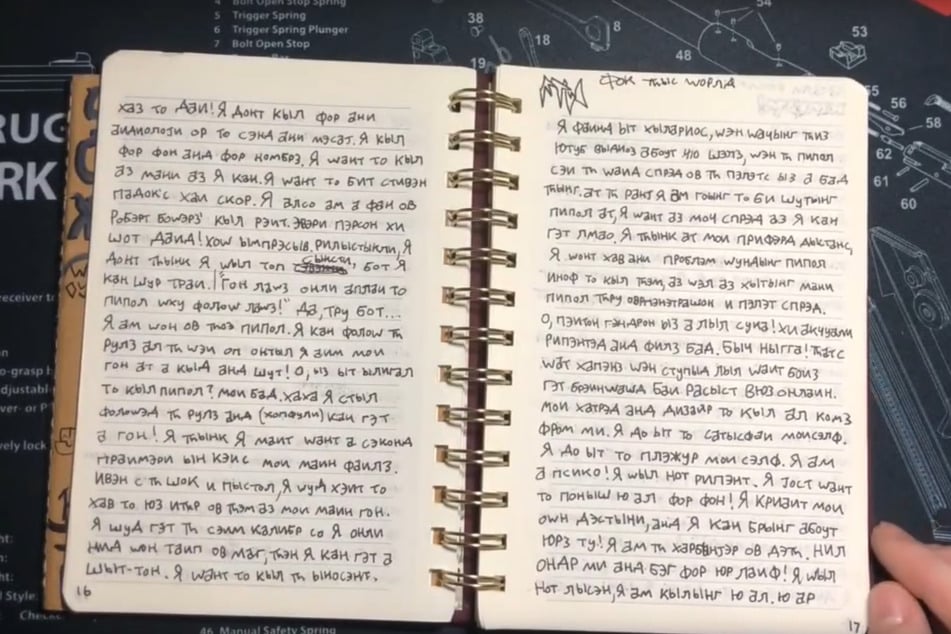 4 Bolt Open Stop Spring
5 Trigger Spring
6 Trigger Spring Plunger
7 Bolt Open Stop
38
18
8
54
53
48
19
55
56
58
62
61
60
RUG
RK
receiver to
on
to-grasp b
adjustable
ver- or P
vely lock
al Style:
46 Manual Safety Spring
хаз то даи! Я донт кыл фор ани
аидиологи ор то сэнд ани мэсаг. Я кыл
фор фон анд фор номбрз. Я want то кыл
аз мани аз Я кан. Я want то бит стивэн
падок'с хаи скор. Я алсо ам а фан ов
Робэрт Боwэрз' кыл рэит. Эвэри пэрсон хи
шот даид! Хоw ымпрэсыв. Рилыстыкли, Я
донт тhынк Я wыл топ сынсти, бот Я
кан шур траи. "Гон лаwз онли аплаи то
пипол wху фолоw лаwз!" Да, тру бот...
Я ам wон ов тhоз пипол. Я кан фолоw тh
рулз ал тh wэи оп онтыл Я аим мои
гон ат а кыд анд шут! О, ыз ыт ылигал
то кыл пипол? Мои бад. хаха Я стыл
фолоwэд тh рулз анд (хопфули) кан гэт
а гон! Я тhынк Я маит want а сэконд
праимэри ын кэис мои маин фаилз.
Ивэн с тh шок и пыстол, Я wуд хэит то
хав то юз итhр ов тhэм аз мои маин гон.
Я шуд гэт тh сэим калибр со Я онли
нид wон таип ов маг, тhэн Я кан гэт а
шыт-тон. Я want то кыл тh ыносэнт.
16
фок тhыс wорлд
Я фаинд ыт хылариос, wэн wачынг тhиз
Ютуб выдиоз абоут 410 шэлз, wэн тh пипол
сэи тh waид спрэд ов тh пэлэтс ыз а бад
тhынг. ат тh рангг Я ам гоинг то би шутынг
пипол ат, Я want аз моч спрэд аз Я кан
гэт лмао. Я тhынк ат мои прифэрд дыстанс,
Я wонт хав ани проблэм wундынг пипол
иноф то кыл тhэм, аз wэл аз хытынг мани
пипол тhру овпэнэтрашон и пэлэт спрэд.
О, пэитон гэндрон ыз а лыл сука! Хи акчуали
рипэнтэд анд филз бад. Быч ныгга! Тhатс
waт хапэнз wэн ступыд лыл waит боиз
гэт брэинwашд баи расыст вюз онлаин.
Мои хатрэд анд дизаир то кыл ал комз
фром ми. Я до ыт то сатысфаи моисэлф.
Я до ыт то плэжур мои сэлф. Я ам
а псико! Я wыл нот рипэнт. Я јост want
то поныш ю ал фор фон! Я криэит мои
оwн дэстыни, анд Я кан брынг абоут
юрз ту! Я ам тh харбынгэр ов дэтh. Нил
ондр ми анд бэг фор юр лаиф! Я wыл
нот лысэн, Я ам кылынг ю ал. Ю ар
17